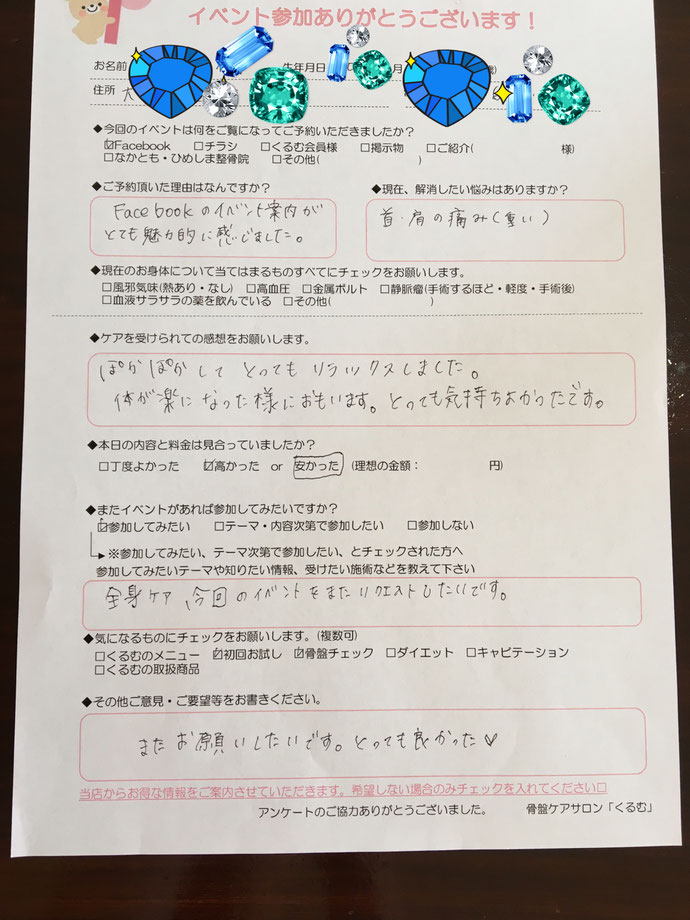 イベント参加ありがとうございます！
お名前
生年月日
月
住所
◆今回のイベントは何をご覧になってご予約いただきましたか？
☑Facebook □チラシ □くるむ会員様 □掲示物 □ご紹介( 様)
□なかとも・ひめしま整骨院 □その他( )
◆ご予約頂いた理由はなんですか？
Facebookのイベント案内が
とても魅力的に感じました。
◆現在、解消したい悩みはありますか？
首・肩の痛み(重い)
◆現在のお身体について当てはまるものすべてにチェックをお願いします。
□風邪気味(熱あり・なし) □高血圧 □金属ボルト □静脈瘤(手術するほど・軽度・手術後)
□血液サラサラの薬を飲んでいる □その他( )
◆ケアを受けられての感想をお願いします。
ぽかぽかして とっても リラックスしました。
体が楽になった様におもいます。とっても気持ちよかったです。
◆本日の内容と料金は見合っていましたか？
□丁度よかった ☑高かった or 安かった (理想の金額： 円)
◆またイベントがあれば参加してみたいですか？
☑参加してみたい □テーマ・内容次第で参加したい □参加しない
※参加してみたい、テーマ次第で参加したい、とチェックされた方へ
参加してみたいテーマや知りたい情報、受けたい施術などを教えて下さい
全身ケア、今回のイベントをまたリクエストしたいです。
◆気になるものにチェックをお願いします。(複数可)
□くるむのメニュー ☑初回お試し ☑骨盤チェック □ダイエット □キャビテーション
□くるむの取扱商品
◆その他ご意見・ご要望等をお書きください。
またお願いしたいです。とっても良かった♡
当店からお得な情報をご案内させていただきます。希望しない場合のみチェックを入れてください□
アンケートのご協力ありがとうございました。 骨盤ケアサロン「くるむ」